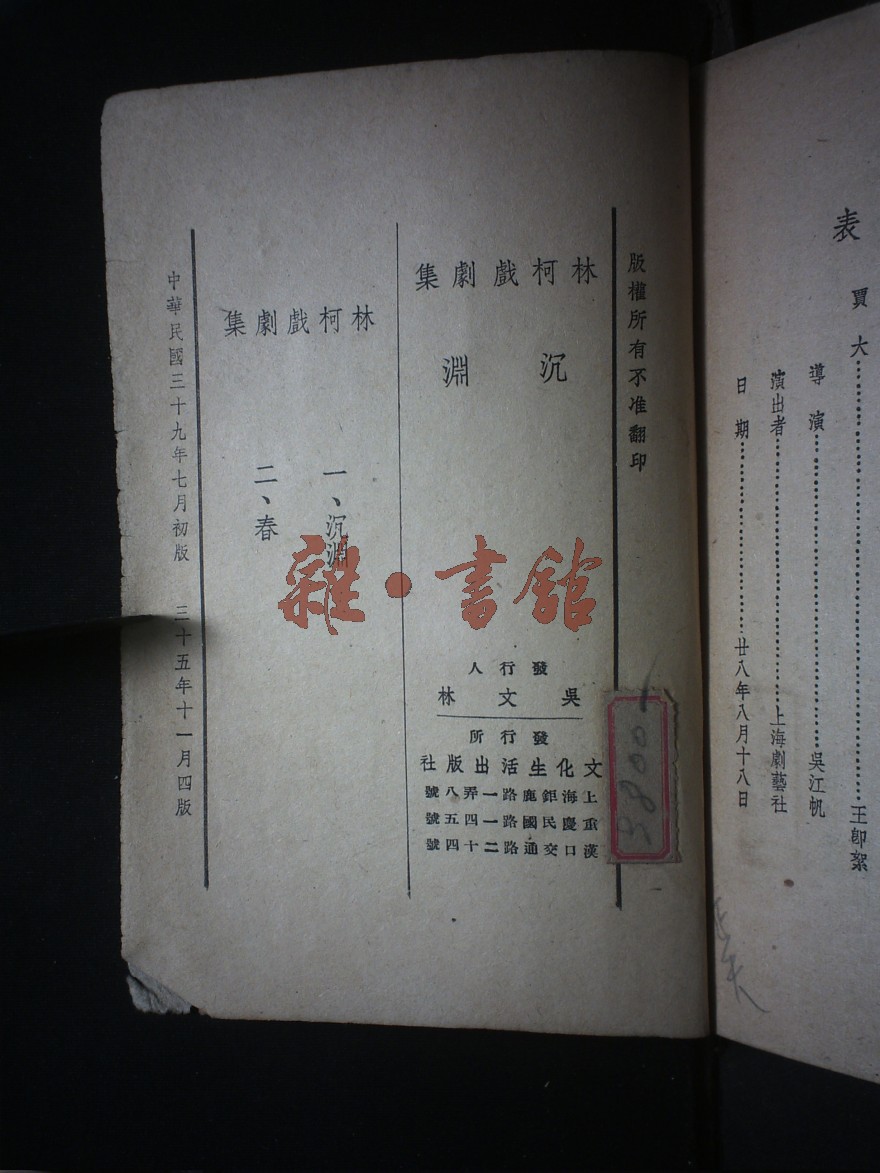 表
賈大……王卽絮
導演……吳江帆
演出者……上海劇藝社
日期……廿八年八月十八日
版權所有不准翻印
林柯戲劇集
沉淵
發行人
吳文林
發行所
文化生活出版社
上海鉅鹿路一弄八號
重慶民國路一四五號
漢口交通路二十四號
林柯戲劇集
一、沉淵
二、春
中華民國三十九年七月初版 三十五年十一月四版
雜·書館